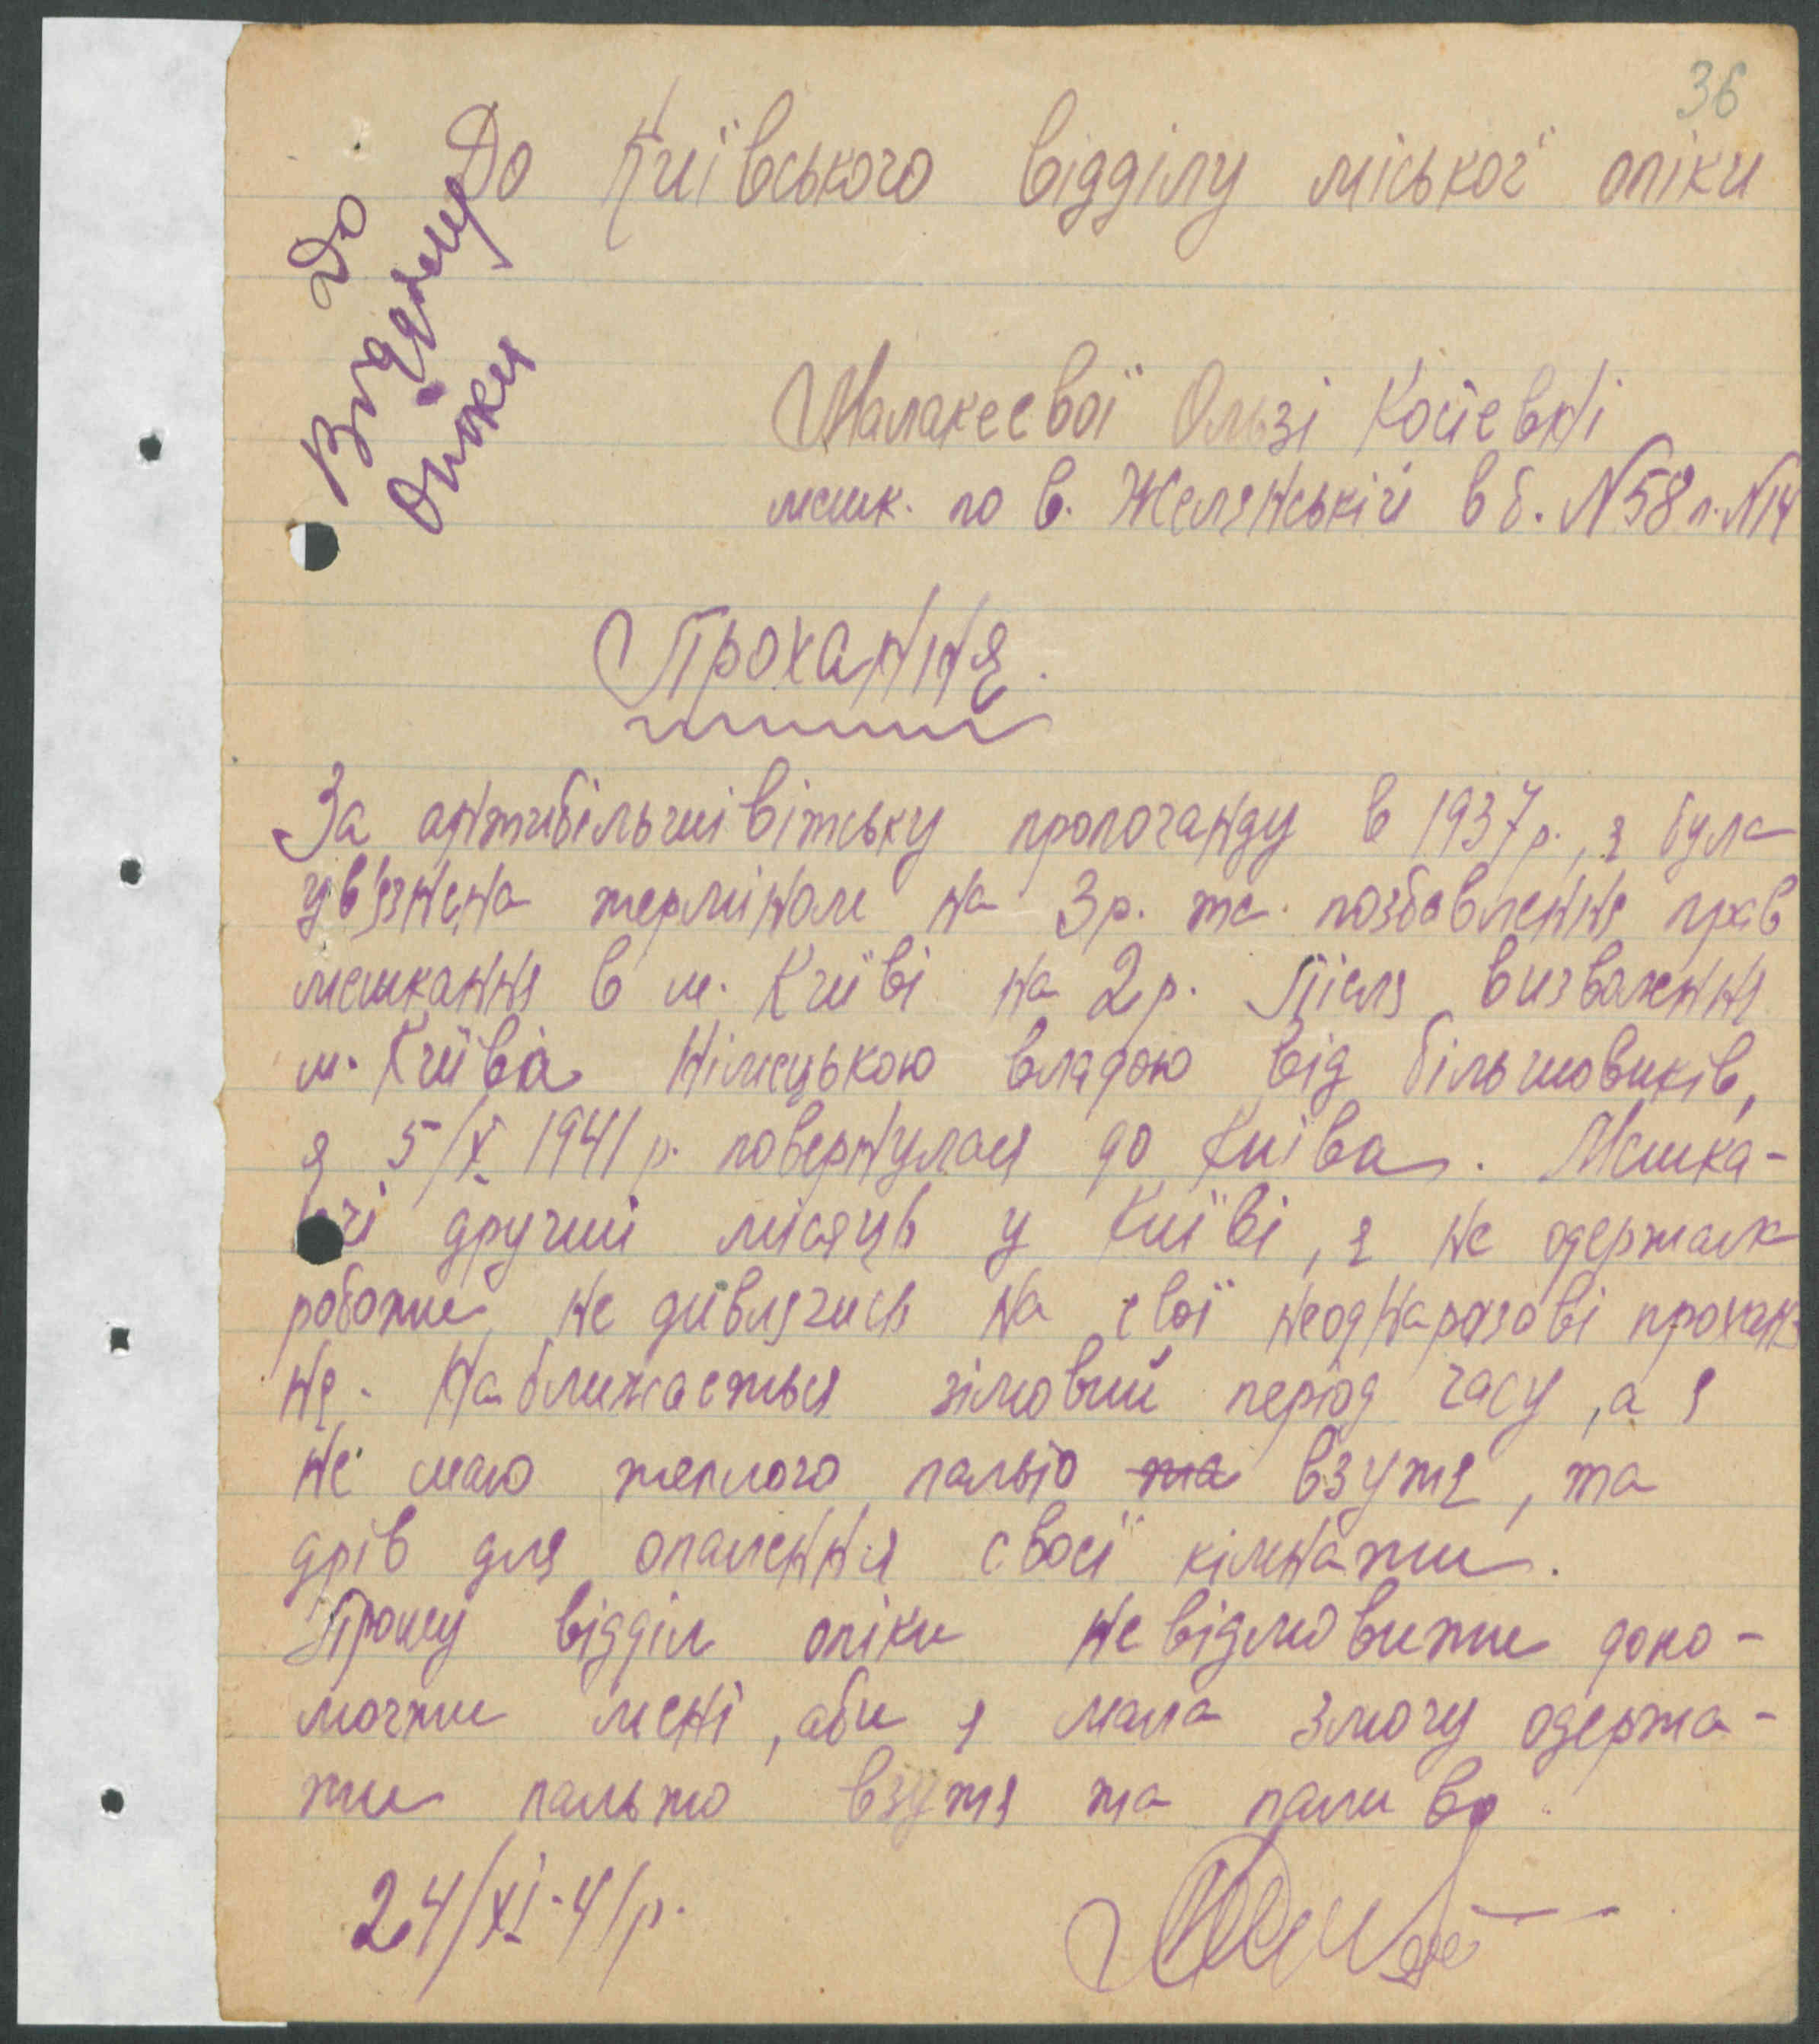 36
До Київського відділу міської опіки
До
Відділу
Опіки
Малакеєвої Ользі
мешк. по в. Желянській в б. N58 п. N14
Прохання.
За антибільшивітську пропоганду в 1937р., я була
ув'язнена терміном на 3р. та позбавлення прав
мешкання в м. Київі на 2р. Після визвалення
м. Київа Німецькою владою від більшовиків,
я 5/X 1941р. повернулася до Київа. Мешка-
ючі другий місяць у Київі, я не одержала
роботи не дивлячись на свої неоднаразові прохан-
ня. Наближається зімовий період часу, а я
не маю теплого пальто та взутя, та
дрів для опалення своєї кімнати.
Прошу відділ опіки не відмовити допо-
могти мені, аби я мала змогу одержа-
ти пальто взутя та паливо.
24/XI-41р.